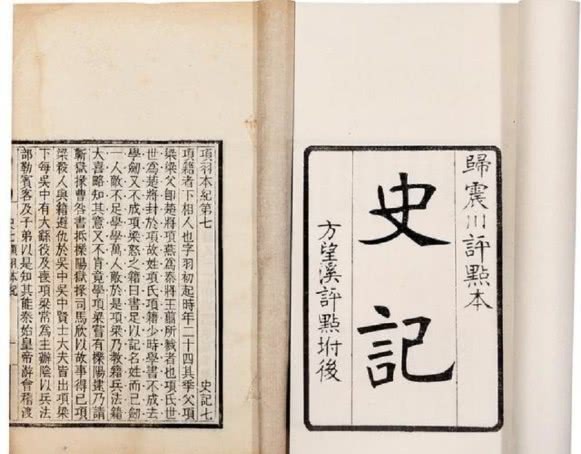 歸震川評點本
史記
方望溪評點坿後
項羽本紀第七 史記七
項籍者下相人也字羽初起時年二十四其季父項
梁梁父即楚將項燕為秦將王翦所戮者也項氏世
世為楚將封於項故姓項氏項籍少時學書不成去
學劍又不成項梁怒之籍曰書足以記名姓而已劍
一人敵不足學學萬人敵於是項梁乃教籍兵法籍
大喜略知其意又不肯竟學項梁嘗有櫟陽逮乃請
蘄獄掾曹咎書抵櫟陽獄掾司馬欣以故事得已項
梁殺人與籍避仇於吳中吳中賢士大夫皆出項梁
下每吳中有大繇役及喪項梁常為主辦陰以兵法
部勒賓客及子弟以是知其能秦始皇帝游會稽渡